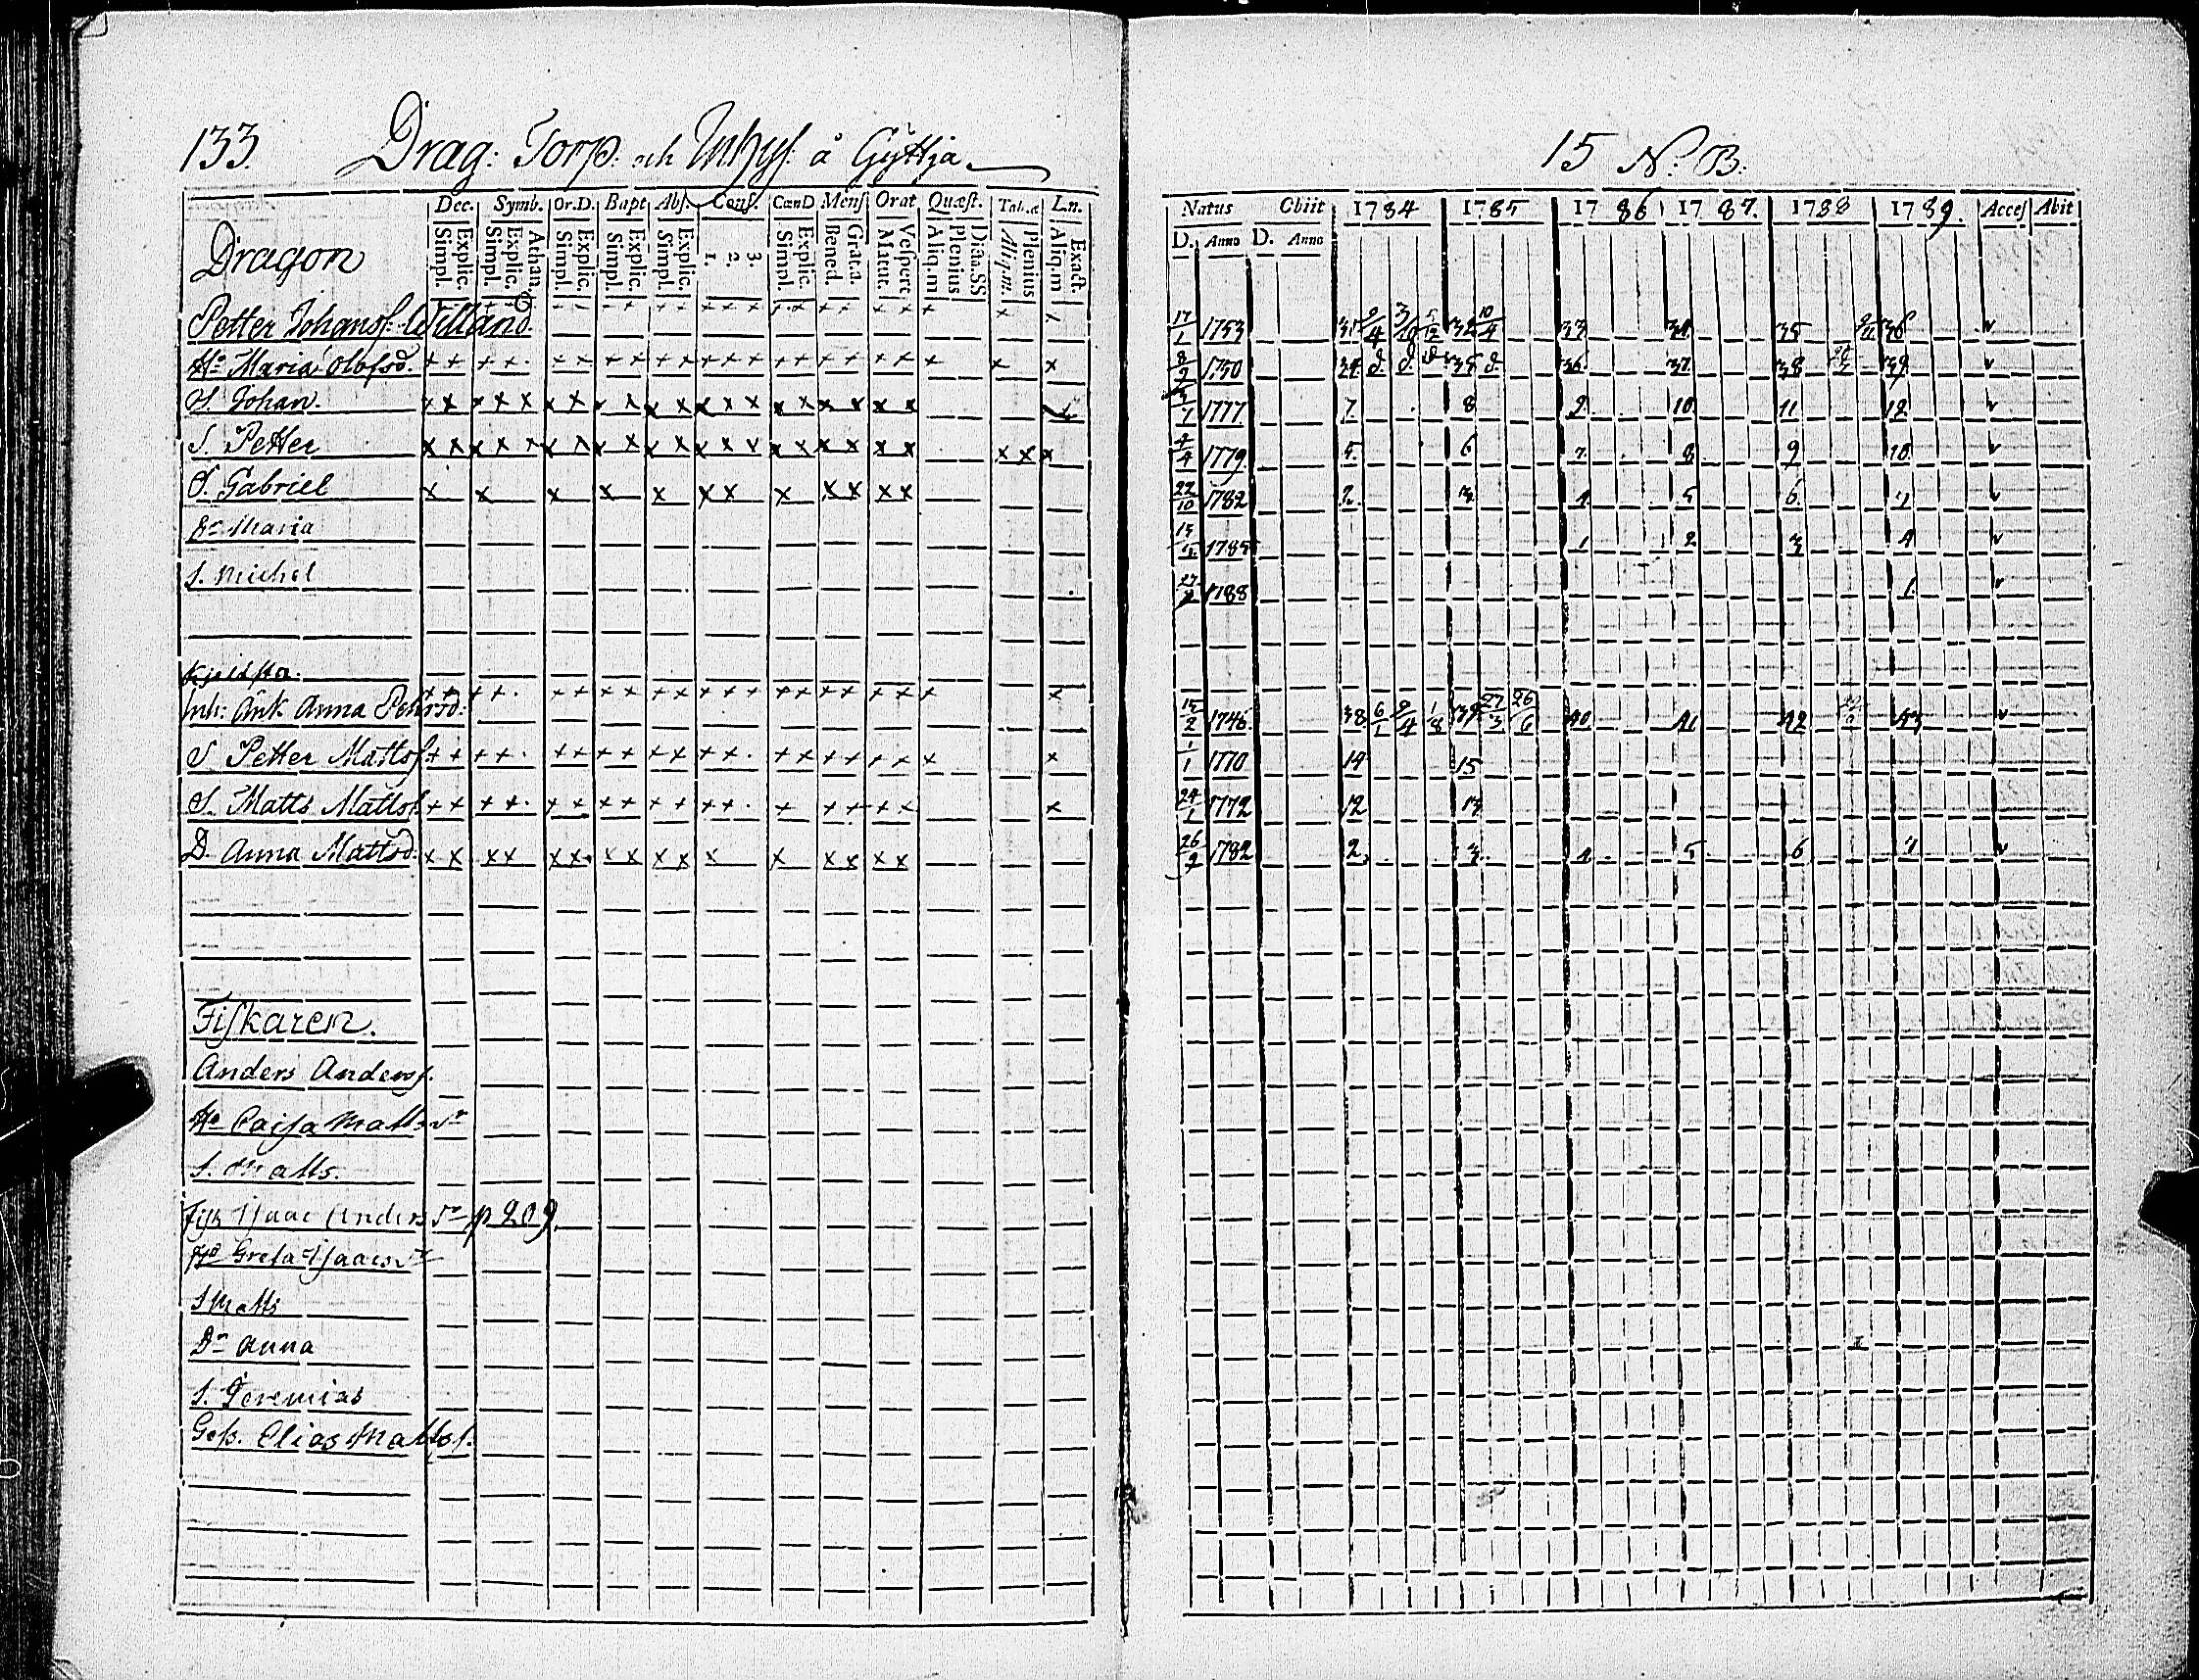 133. Drag: Torp: och Inhys: å Gyttja
15 N:o B:
Dec. Symb. Or.D. Bapt Abs. Conf. CœnD Mens Orat Quæst. Tab.æ Ln.
Explic. Simpl. Athan. Explic. Simpl. Explic. Simpl. Explic. Simpl. Explic. Simpl. 1. 2. 3. Explic. Simpl. Grat.a. Bened. Vespert Matut. Dicta.SS Plenius Aliq.m Plenius Aliq.m. Exact. Aliq.m
Natus Obiit 1784 1785 1786 1787. 1788 1789. Acces Abit
D. Anno D. Anno
Dragon
Petter Johansf. Willand 17/1 1753 31 32 10/4 33 34 35 36
H:o Maria Olofsd. 8/9 1750 34 35 36 37 38 39
S. Johan. 1777 7 8 9 10 11 12
S. Petter 4/4 1779 5 6 7 8 9 10
S. Gabriel 22/10 1782 2 3 4 5 6 7
D:r Maria 1785 1 2 3 4
S. Michel 1788 1
Inh: Änk. Anna Pehrsd: 15/2 1746 38 6/1 9/4 1/8 39 27/3 26/6 40 41 42 43
S. Petter Mattsf. 1/1 1770 14 15
S. Matts Mattsf. 24/1 1772 12 13
D. Anna Mattsd. 26/9 1782 2 3 4 5 6 7
Fiskaren.
Anders Andersf.
H:o Caisa Matts d:r
S. Matts.
Fisk Isaac Anders s:n p 209
H:o Greta Isaacs d:r
S Matts
D:r Anna
S. Jeremias
Geß. Elias Mattsf.